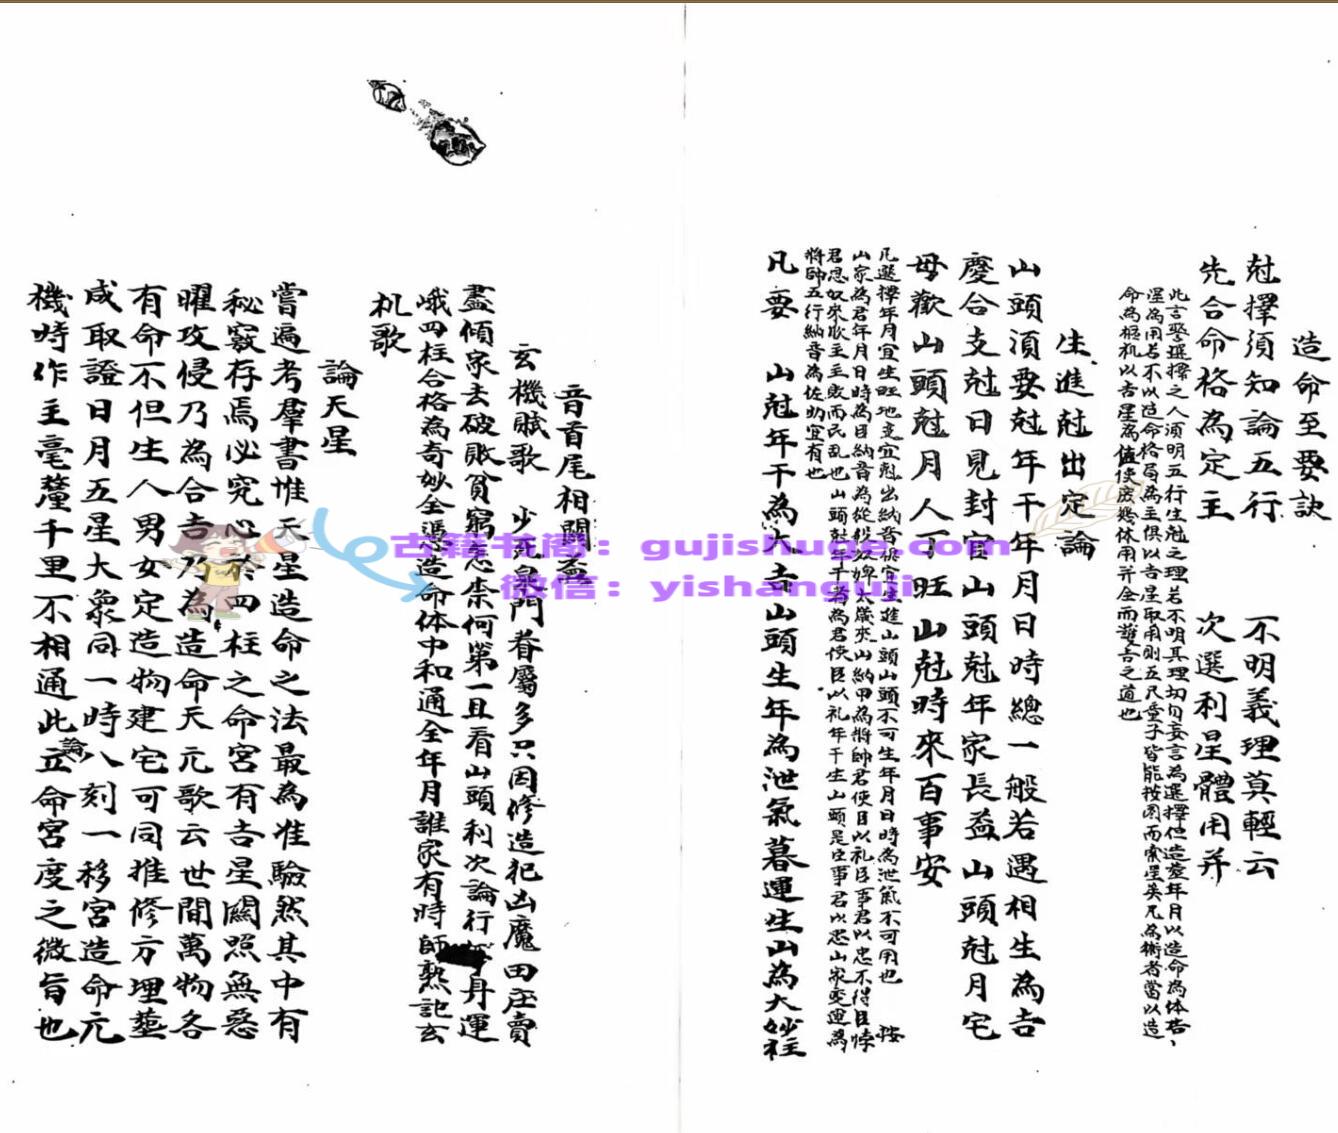 造命至要訣
尅擇須知論五行　不明義理莫輕云
先合命格為定主　次選利星體用并
此言娶選擇之人須明五行生尅之理若不明其理切勿妄言為選擇但造塟年月以造命為体吉
星為用若不以造命格局為主俱以吉星取用則五尺童子皆能按圖而索星矣凡為術者當以造
命為樞机以吉星為值使庶幾体用并全而雙吉之道也
生進尅出定論
山頭須要尅年干年月日時總一般若遇相生為吉
慶合支尅日見封官山頭尅年家長益山頭尅月宅
母歡山頭尅月人丁旺山尅時來百事安
凡選擇年月宜生旺地支宜尅出納音宜生進山頭山頭不可生年月日時為泄氣不可用也　按
山家為君年月日時為臣納音為從般奴婢太歲來山納甲為將帥君使臣以礼臣事君以忠不得臣悖
君恩奴來欺主主衰而民乱也山頭尅年干者為君使臣以礼年干生山頭是臣事君以忠山家变運為
將帥五行納音為佐助宜有也
凡要　山尅年干為大吉山頭生年為泄氣墓運生山為大妙柱
音首尾相關益
玄機賦歌　少死泉門眷屬多只因修造犯凶魔田庄賣
盡傾家去破敗貧窮怎奈何第一且看山頭利次論行身運
峨四柱合格為奇妙全憑造命体中和通全年月誰家有時師熟記玄
机歌
論天星
嘗遍考羣書惟天星造命之法最為准驗然其中有
秘竅存焉必究心於四柱之命宮有吉星關照無惡
曜攻侵乃為合吉乃為造命天元歌云世間萬物各
有命不但生人男女定造物建宅可同推修方埋塟
咸取證日月五星大象同一時八刻一移宮造命元
機時作主毫釐千里不相通此論立命宮度之微旨也
古籍书阁：gujishuge.com
微信：yishanguji